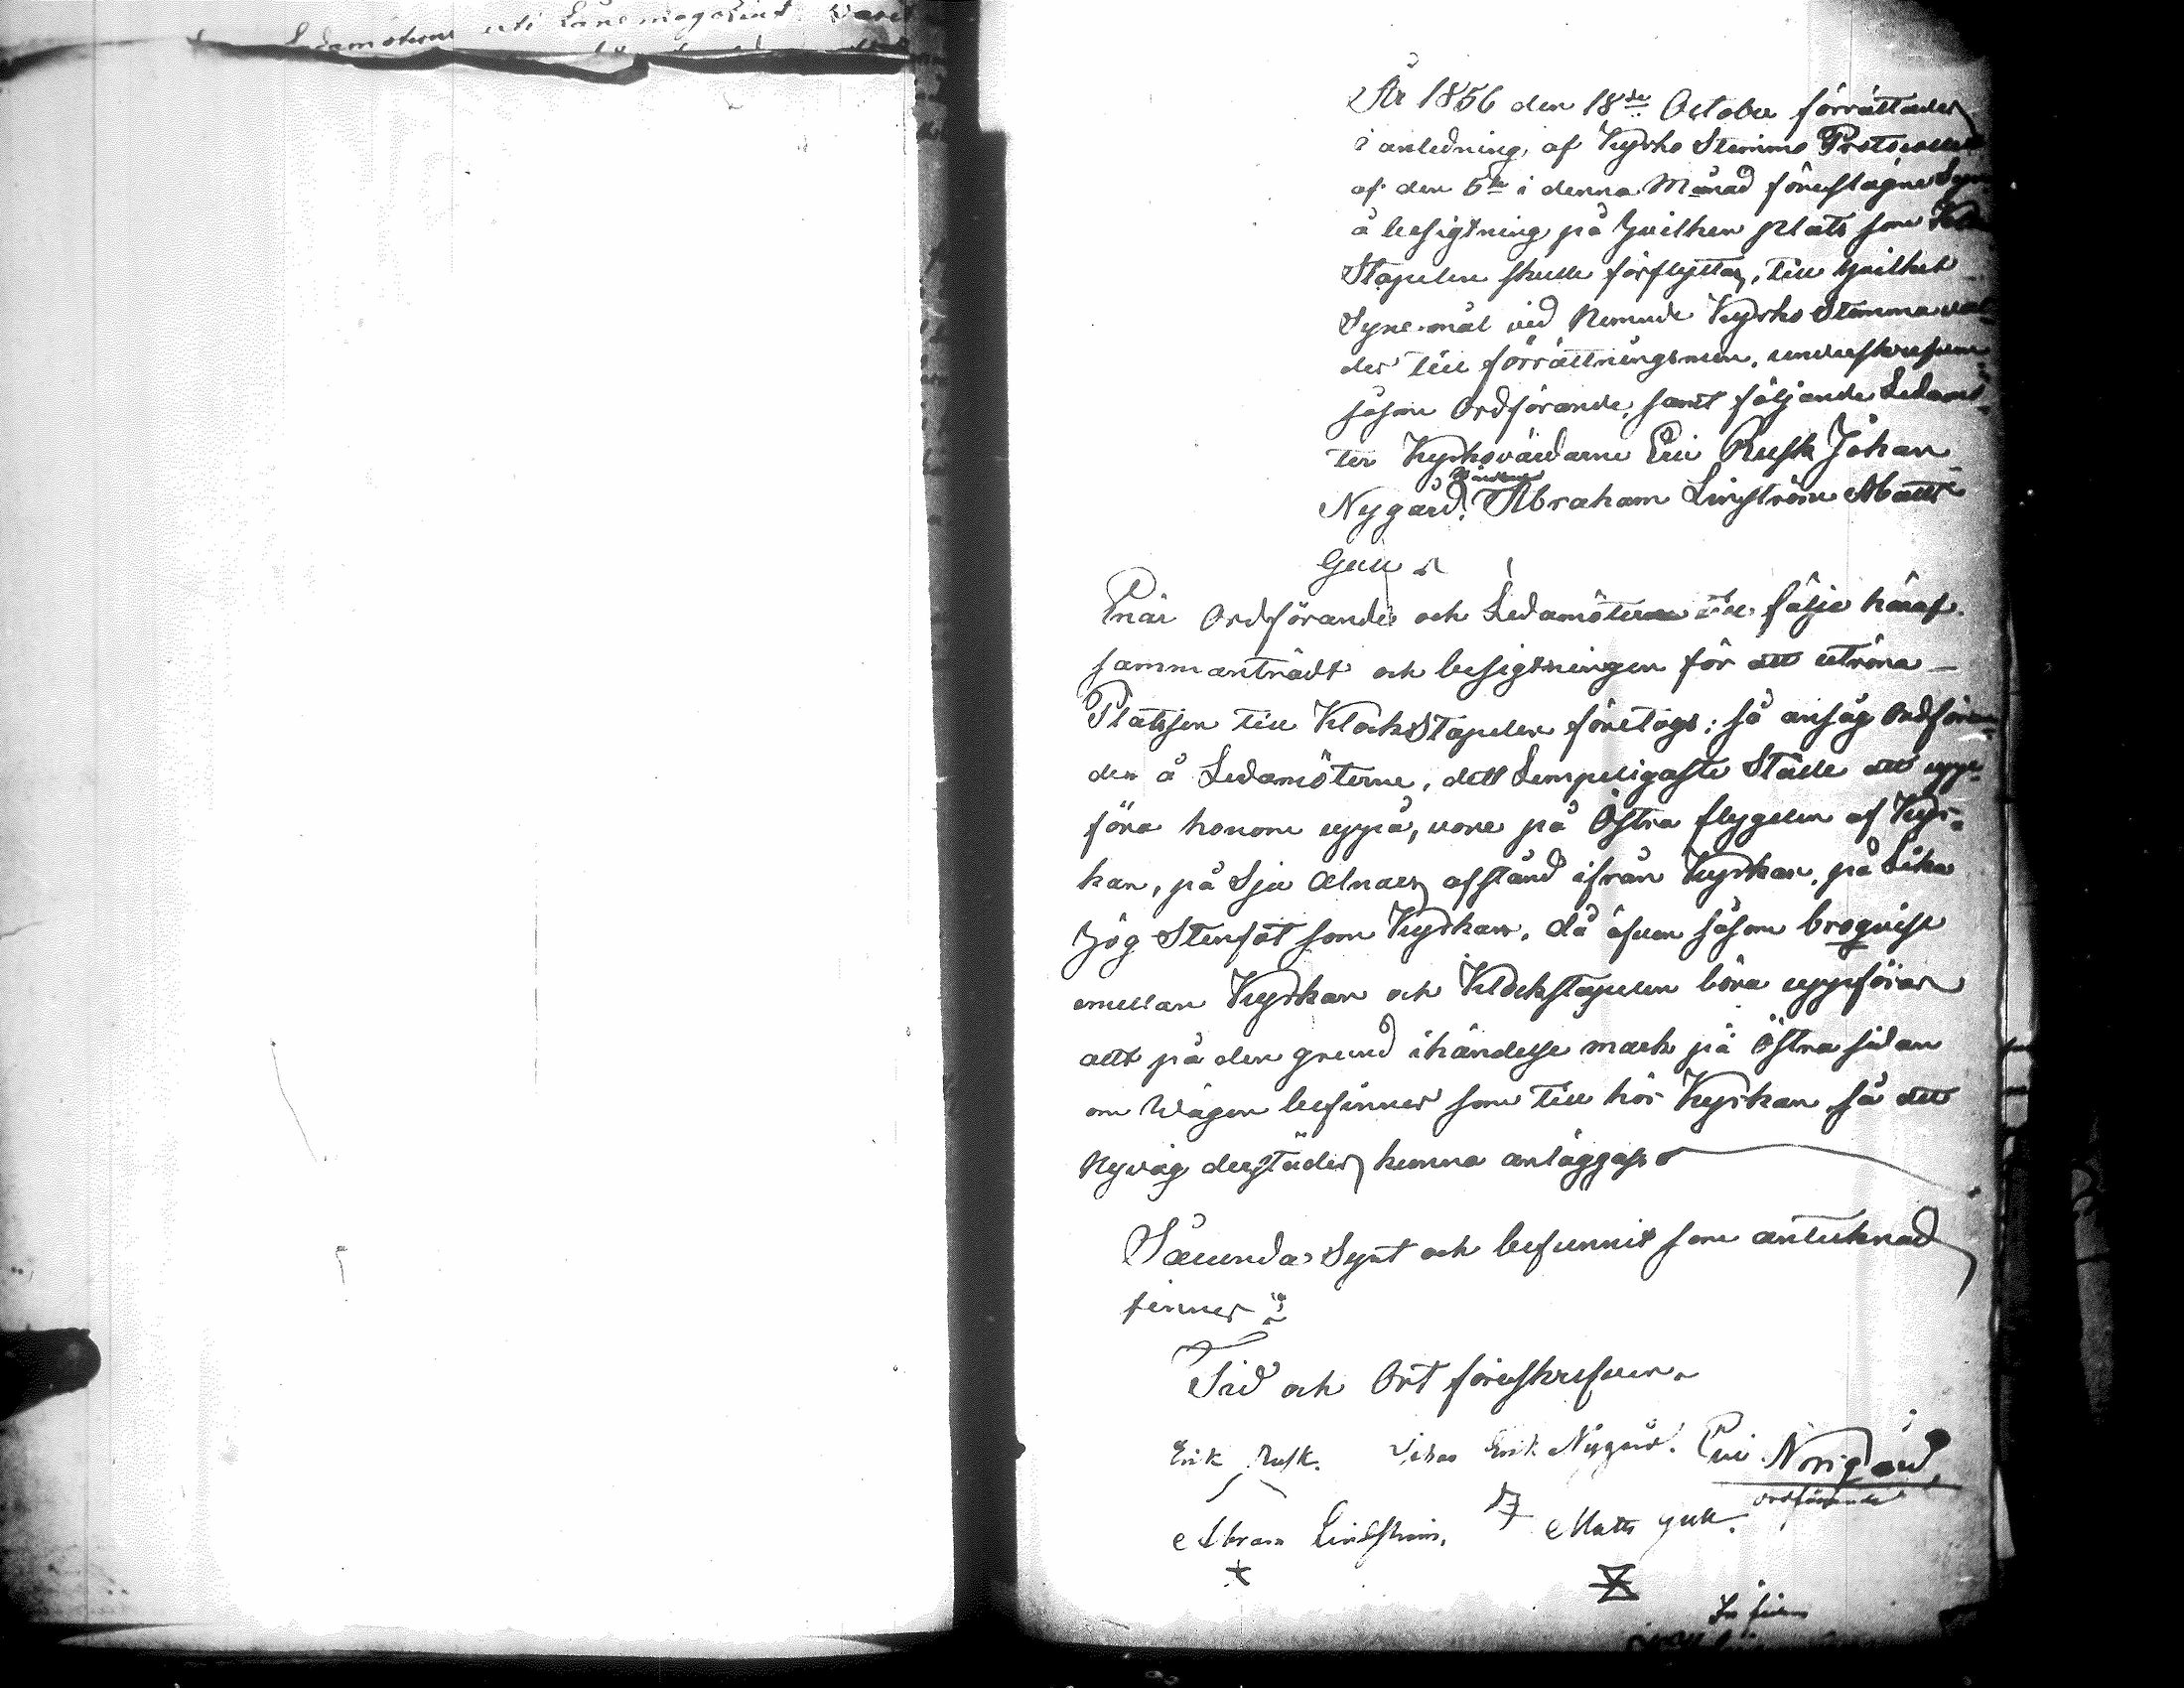 Ledamöterne uti Lånemagasinet Varit
År 1856 den 18de October förrättades
i anledning, af Kyrko Stemmo Protocoller
af den 5te i denna Månad föreslagne Syn
å besigtning på hvilken plats som Klock
Stapelen skulle förflyttas, till hvilket
Syne-mål vid Nemnde Kyrko Stemma val-
des till förrättningsmen, underskrefven
såsom Ordförande, samt följande Ledamö-
ter Kyrkovärdarne Eric Rusk Johan
Nygård, Abraham Linström Matts
Gull
Enär Ordförande och Ledamöterne till följe häraf
sammanträdt och besigtningen för att utröna
Platsen till KlockStapelen företogs; så ansåg Ordföran-
den å Ledamöterne, dett Lempeligaste Ställe att upp-
föra honom uppå, vore på Östra flygelen af Kyr-
kan, på Sju alnars afstånd ifrån Kyrkan, på Lika
hög Stenfot som Kyrkan, då äfven såsom brogvise
emellan Kyrkan och Klockstapelen böra uppföras
allt på den grund ihändelse mark på Östra sidan
om Wägen befinnes som till hör Kyrkan så att
Nyväg derstädes kunna anläggas
Sålunda Synt och befunnit som antecknad
finnes
Tid och Ort föreskrefven
Erik Rusk. Johan Erik Nygård. Eric Norrgård,
ordförande
Abram Lindström, Matts gull.